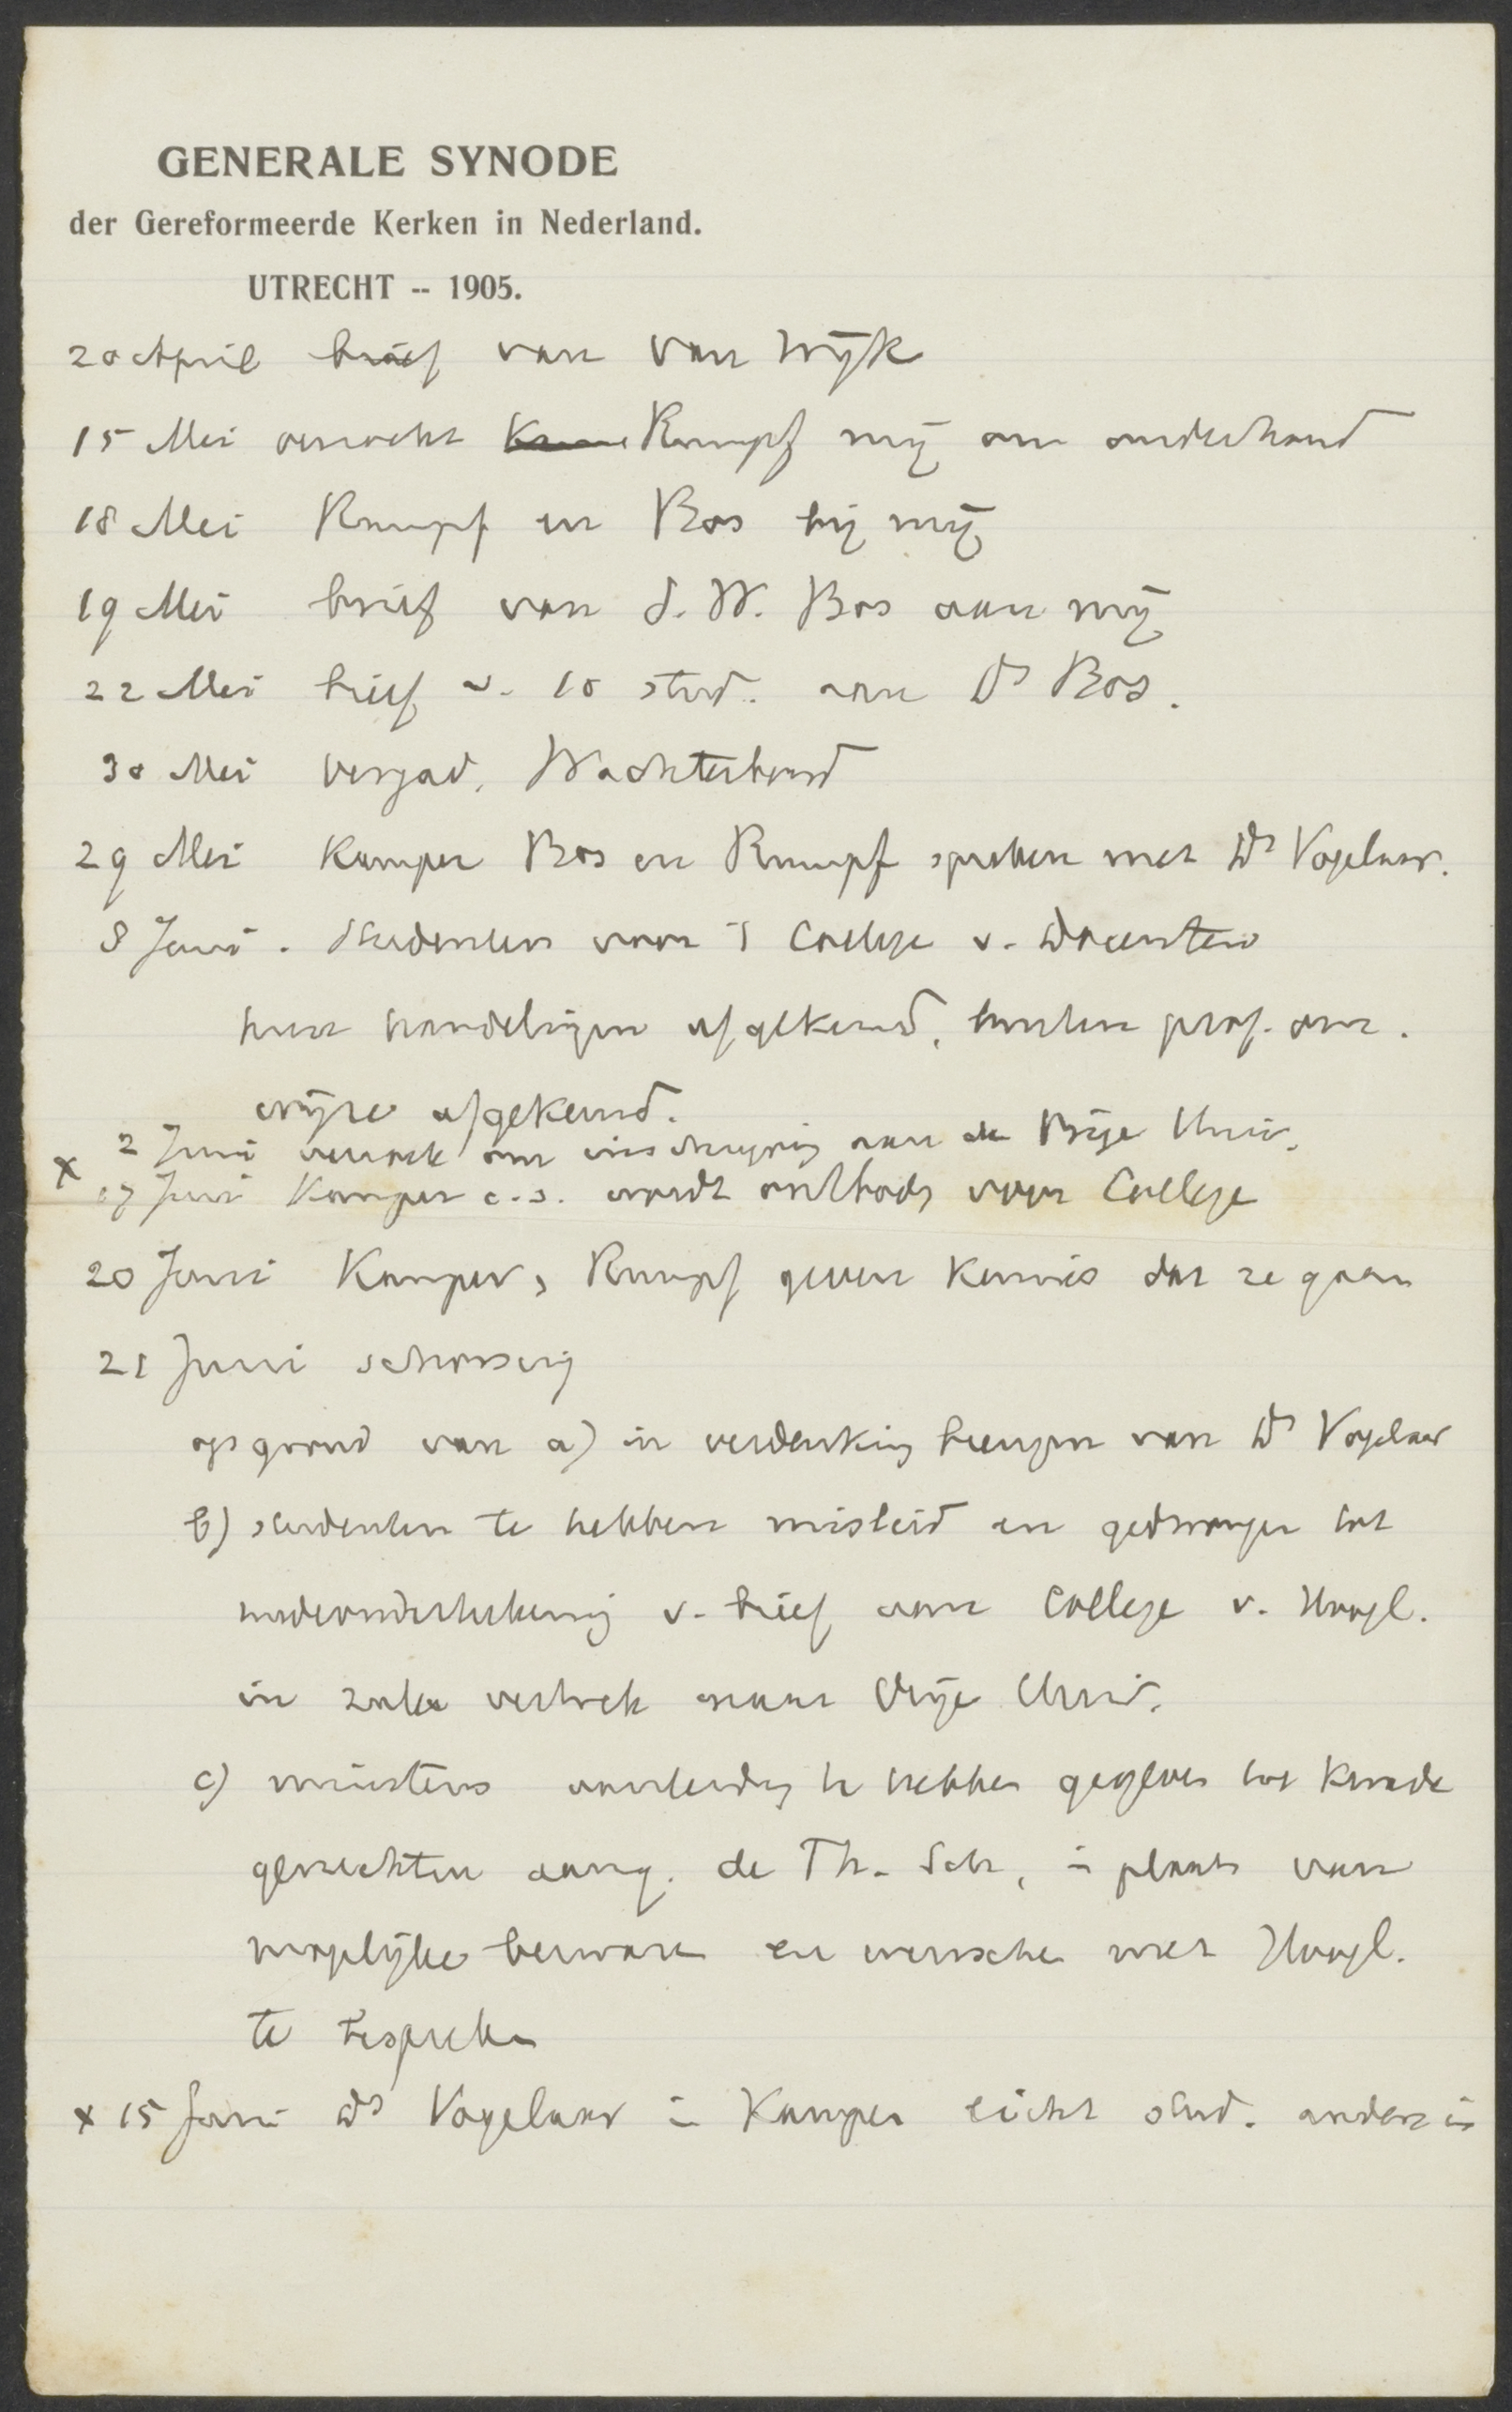 GENERALE SYNODE
der Gereformeerde Kerken in Nederland.
UTRECHT -- 1905.
20 April brief van Van Wijk
15 Mei verzoekt Rumpf mij om onderhoud
18 Mei Rumpf en Bos bij mij
19 Mei brief van S. W. Bos aan mij
22 Mei brief v. 10 stud. aan Ds Bos.
30 Mei vergad. Wachterbond
29 Mei Kamper Bos en Rumpf spreken met Ds Vogelaar.
8 Juni. Studenten voor 't College v. Docenten
hun handelingen afgekeurd, buiten prof. om.
wijze afgekeurd.
x 2 Juni verzoek om inschrijving aan de Vrije Univ.
17 Juni Kamper c.s. wordt ontbode voor College
20 Juni Kamper, Rumpf geven kennis dat ze gaan
21 Juni schorsing
op grond van a) in verdenking brengen van Ds Vogelaar
b) studenten te hebben misleid en gedwongen tot
medeonderteekening v. brief aan College v. Hoogl.
in zake vertrek naar Vrije Univ.
c) minstens aanleiding te hebben gegeven tot kwade
geruchten aang. de Th. Sch, in plaats van
mogelijke bezwaren en wenschen met Hoogl.
te bespreken
x 15 Juni Ds Vogelaar in Kampen stud. anders in